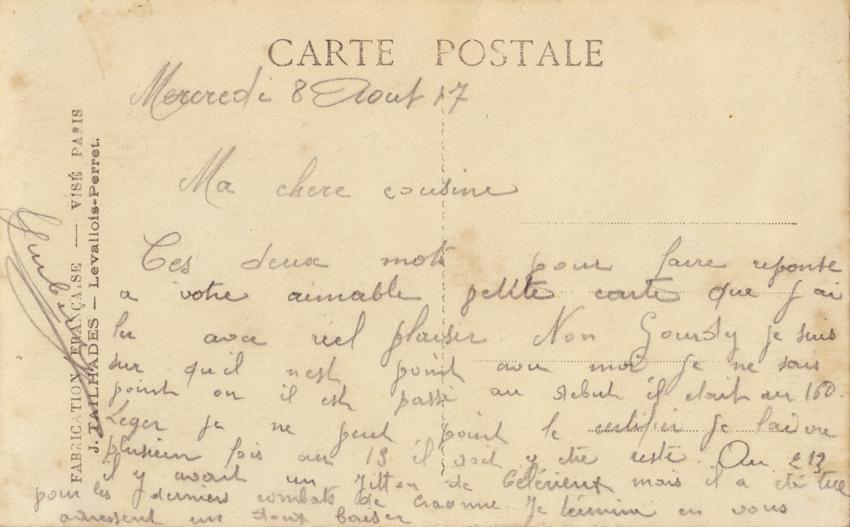 CARTE POSTALE
Mercredi 8 Aout 17
Ma chere cousine
Ces deux mots pour faire reponse
a votre aimable petite carte que j'ai
lu avec réel plaisir. Non je suis
sur qu'il n'est point avec moi je ne sais
point ou il est passé au debut il etait au 160.
Leger je ne peut point le certifier je l'ai vue
plusieur fois au 13 il doit y être resté. Au 213
il y avait un de Celérieux mais il a été tué
pour les derniers combats de Craonne. Je termine en vous
adressent un doux baiser
FABRICATION FRANÇAISE — VISÉ PARIS
J. TAILHADES — Levallois-Perret.